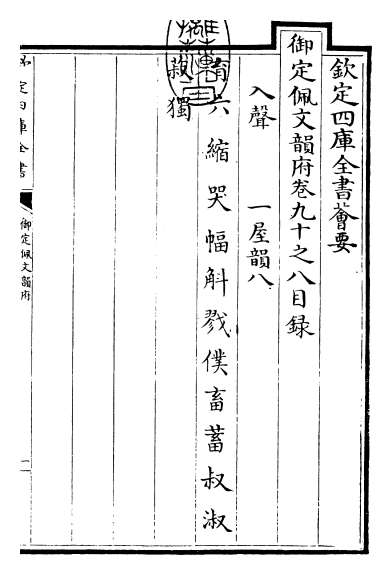 欽定四庫全書薈要
御定佩文韻府卷九十之八目録
入聲 一屋韻八
育六縮哭幅斛戮僕畜蓄叔淑
菽獨
定四庫全書
御定佩文韻府
一